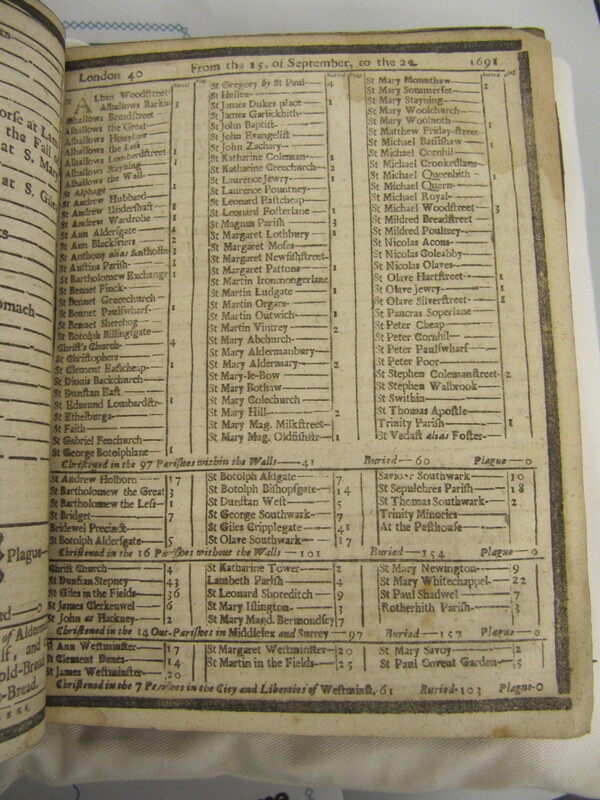 London 40 From the 15. of September, to the 22 1691
St Alban Woodstreet
Alhallows Barkin 1
Alhallows Breadstreet
Alhallows the Great
Alhallows Honylane
Alhallows the Less
Alhallows Lombardstreet 1
Alhallows Stayning
Alhallows the Wall
St Alphage 1
St Andrew Hubbard
St Andrew Undershaft 1
St Andrew Wardrobe 1
St Ann Aldersgate
St Ann Blackfriers 2
St Anthony alias Antholin
St Austins Parish 1
St Bartholomew Exchange 1
St Bennet Finck
St Bennet Gracechurch
St Bennet Paulswharf 1
St Bennet Sherehog
St Botolph Billingsgate
Christ's Church 4
St Christophers
St Clement Eastcheap 1
St Dionis Backchurch
St Dunstan East
St Edmund Lombardstr 1
St Ethelburga
St Faith
St Gabriel Fenchurch
St George Botolphlane 1
St Gregory by St Paul 4
St Hellen
St James Dukes place 1
St James Garlickhith
St John Baptist
St John Evangelist
St John Zachary
St Katharine Coleman 1
St Katharine Creechurch 2
St Laurence Jewry 1
St Laurence Pountney
St Leonard Eastcheap
St Leonard Fosterlane 1
St Magnus Parish 3
St Margaret Lothbury 1
St Margaret Moses
St Margaret Newfishstreet
St Margaret Pattons 1
St Martin Ironmongerlane
St Martin Ludgate 1
St Martin Orgars
St Martin Outwich 1
St Martin Vintrey 2
St Mary Abchurch
St Mary Aldermanbury
St Mary Aldermary 2
St Mary-le-Bow
St Mary Bothaw
St Mary Colechurch
St Mary Hill 2
St Mary Mag. Milkstreet
St Mary Mag. Oldfishstr 1
St Mary Mounthaw
St Mary Sommerset 2
St Mary Stayning
St Mary Woolchurch
St Mary Woolnoth
St Matthew Friday-street
St Michael Bassishaw 1
St Michael Cornhil
St Michael Crookedlane
St Michael Queenhith 1
St Michael Quern
St Michael Royal
St Michael Woodstreet 3
St Mildred Breadstreet
St Mildred Poultney
St Nicolas Acons
St Nicolas Coleabby
St Nicolas Olaves
St Olave Hartstreet 1
St Olave Jewry 1
St Olave Silverstreet 1
St Pancras Soperlane
St Peter Cheap
St Peter Cornhil
St Peter Paulswharf
St Peter Poor
St Stephen Colemanstreet 2
St Stephen Walbrook
St Swithin
St Thomas Apostle
Trinity Parish 1
St Vedast alias Foster
Christened in the 97 Parishes within the Walls 41 Buried 60 Plague 0
St Andrew Holborn 17
St Bartholomew the Great 3
St Bartholomew the Less 1
St Bridget 7
Bridewel Precinct
St Botolph Aldersgate 5
St Botolph Algate 7
St Botolph Bishopsgate 14
St Dunstan West 5
St George Southwark 7
St Giles Cripplegate 41
St Olave Southwark 17
Saviour Southwark 10
St Sepulchres Parish 18
St Thomas Southwark 2
Trinity Minories
At the Pesthouse
Christened in the 16 Parishes without the Walls 101 Buried 154 Plague 0
Christ Church 4
St Dunstan Stepney 43
St Giles in the Fields 36
St James Clerkenwel 6
St John at Hackney 2
St Katharine Tower 2
Lambeth Parish 4
St Leonard Shoreditch 9
St Mary Islington 3
St Mary Magd. Bermondsey 7
St Mary Newington 9
St Mary Whitechappel 22
St Paul Shadwel 7
Rotherhith Parish 3
Christened in the 14 Out-Parishes in Middlesex and Surrey 97 Buried 157 Plague 0
St Ann Westminster 17
St Clement Danes 14
St James Westminster 20
St Margaret Westminster 20
St Martin in the Fields 25
St Mary Savoy 2
St Paul Covent Garden 5
Christened in the 7 Parishes in the City and Liberties of Westminst. 61 Buried 103 Plague 0